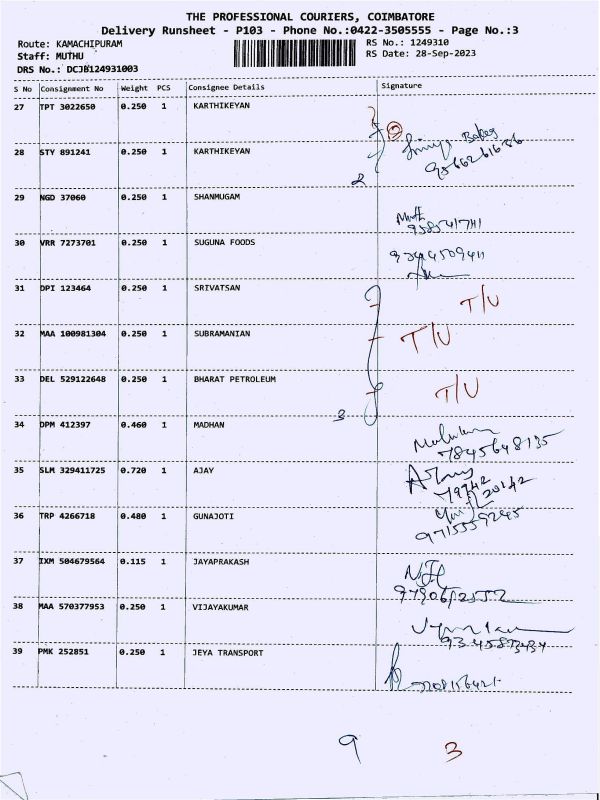 THE PROFESSIONAL COURIERS, COIMBATORE
Delivery Runsheet - P103 - Phone No.:0422-3505555 - Page No.:3
Route: KAMACHIPURAM RS No.: 1249310
Staff: MUTHU RS Date: 28-Sep-2023
DRS No.: DCJB124931003
S No Consignment No Weight PCS Consignee Details Signature
27 TPT 3022650 0.250 1 KARTHIKEYAN
28 STY 891241 0.250 1 KARTHIKEYAN
2
29 NGD 37060 0.250 1 SHANMUGAM
30 VRR 7273701 0.250 1 SUGUNA FOODS
31 DPI 123464 0.250 1 SRIVATSAN T/U
32 MAA 100981304 0.250 1 SUBRAMANIAN T/U
33 DEL 529122648 0.250 1 BHARAT PETROLEUM T/U
3
34 DPM 412397 0.460 1 MADHAN
7845648135
35 SLM 329411725 0.720 1 AJAY
36 TRP 4266718 0.480 1 GUNAJOTI
37 IXM 504679564 0.115 1 JAYAPRAKASH
38 MAA 570377953 0.250 1 VIJAYAKUMAR
39 PMK 252851 0.250 1 JEYA TRANSPORT
9 3